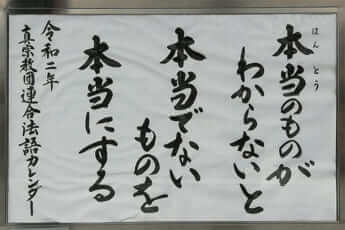 ほんとう
本当のものが
わからないと
本当でない
ものを
本当にする
令和二年
真宗教団連合法語カレンダー